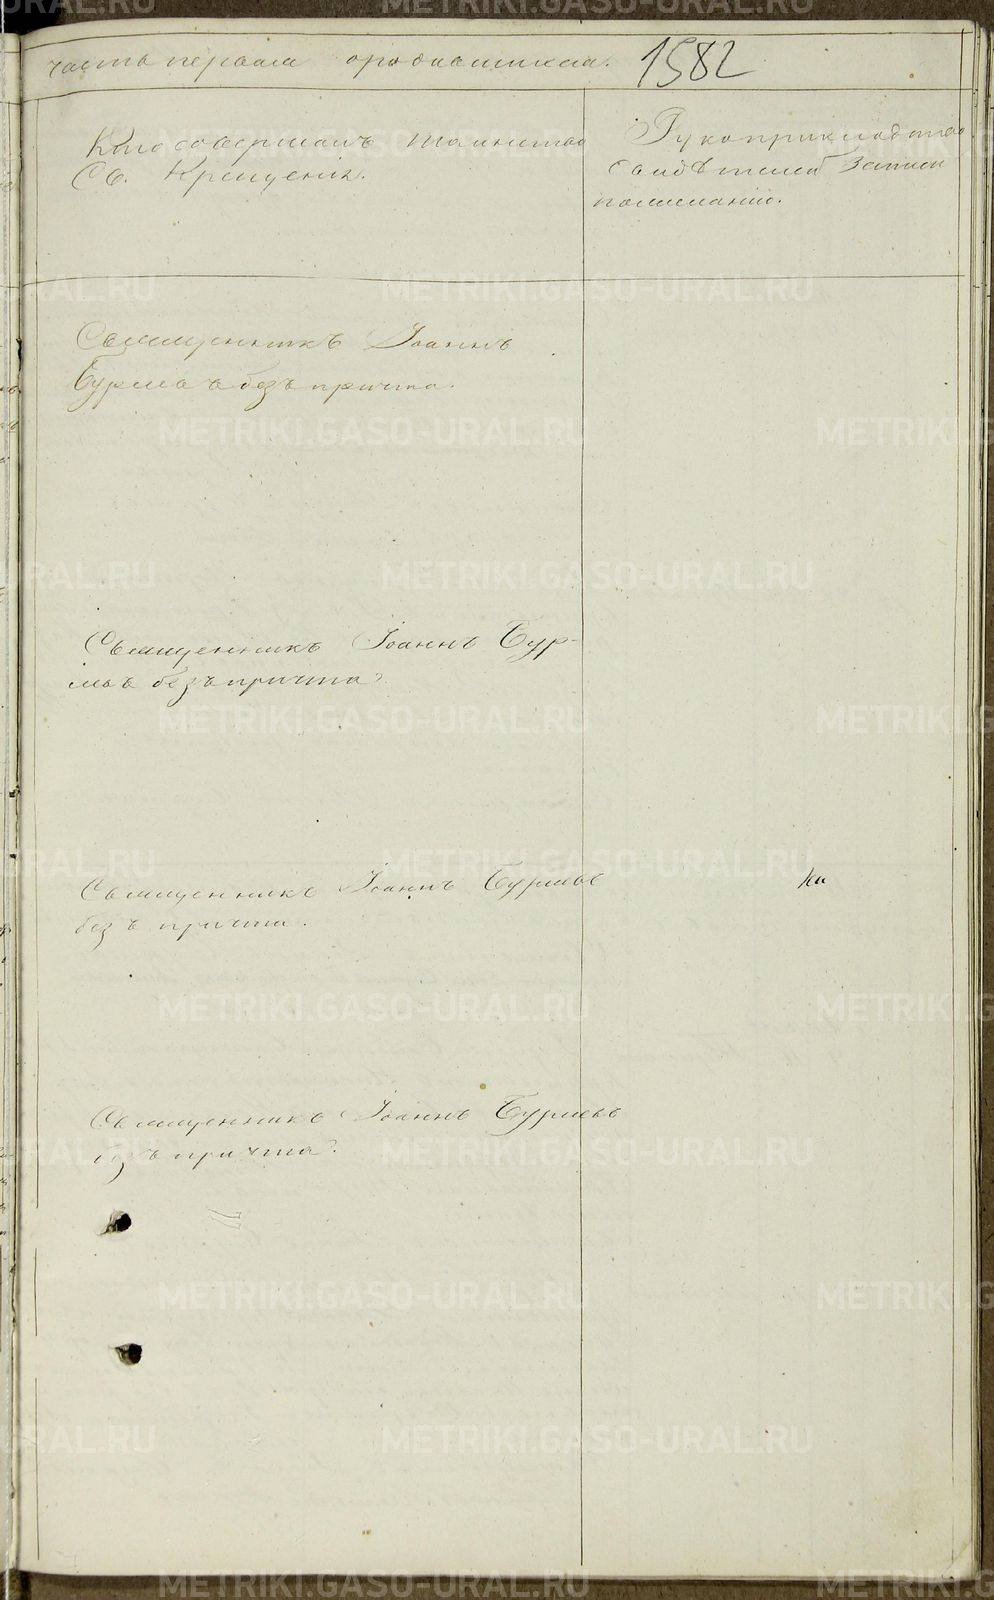 часть первая ородившихся. 1582
Кто совершалъ таинство
Св. Крещенія.
Рукоприкладство
свидѣтелей записи
пожеланію.
Священникъ Іоаннъ
Бурмовъ безъ причта.
Священникъ Іоаннъ Бур-
мовъ безъ причта.
Священникъ Іоаннъ Бурмовъ
безъ причта.
Священникъ Іоаннъ Бурмовъ
безъ причта.
METRIKI.GASO-URAL.RU